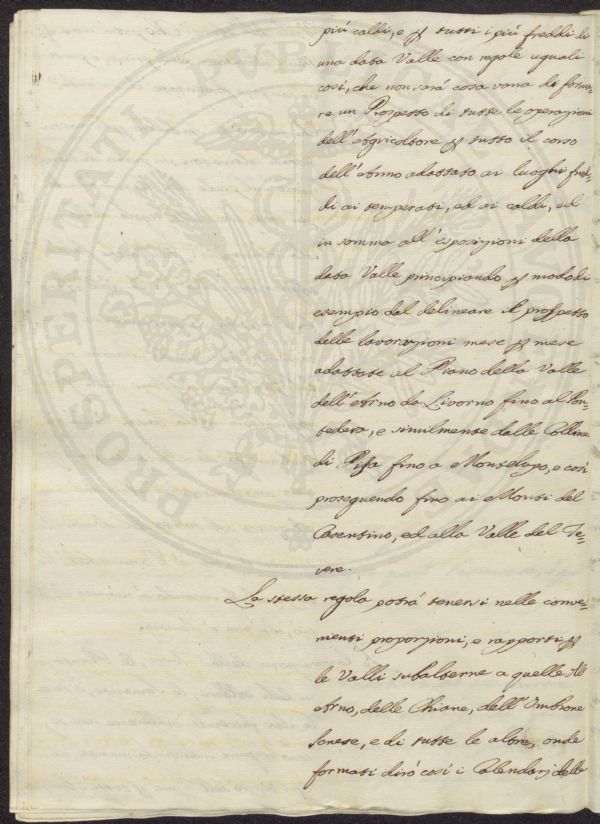 più caldi, e p tutti i più freddi di
una data Valle con regole uguali
così, che non sarà cosa vana di forma=
re un Prospetto di tutte le operazioni
dell'Agricoltore p tutto il corso
dell'Anno adattato ai luoghi fred=
di ai temperati, ed ai caldi, ed
in somma all'esposizioni della
data Valle principiando p modo di
esempio dal delineare il prospetto
delle lavorazioni mese p mese
adattate al Piano della Valle
dell'Arno da Livorno fino al Pon=
tedera, e similmente dalle Colline
di Pisa fino a Montelupo, e così
proseguendo fino ai Monti del
Casentino, ed alla Valle del Te=
vere.
La stessa regola potrà tenersi nelle conve=
nienti proporzioni, e rapporti p
le Valli subalterne a quelle
Arno, delle Chiane, dell'Ombrone
Senese, e di tutte le altre, onde
formati dirò così i Calendarj delle
PROSPERITATI PUBLICAE